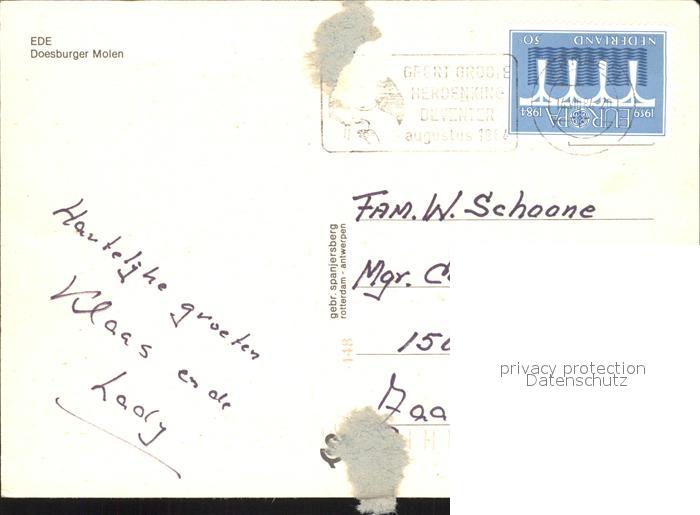 EDE
Doesburger Molen
GEERT GROOTE
HERDENKING
DEVENTER
augustus 1984
NEDERLAND
50c
EUROPA
1959 1984
Hartelijke groeten
Klaas en de
Lady
gebr. spanjersberg
rotterdam - antwerpen
148
FAM. W. Schoone
Mgr. C
150
Zaa
privacy protection
Datenschutz